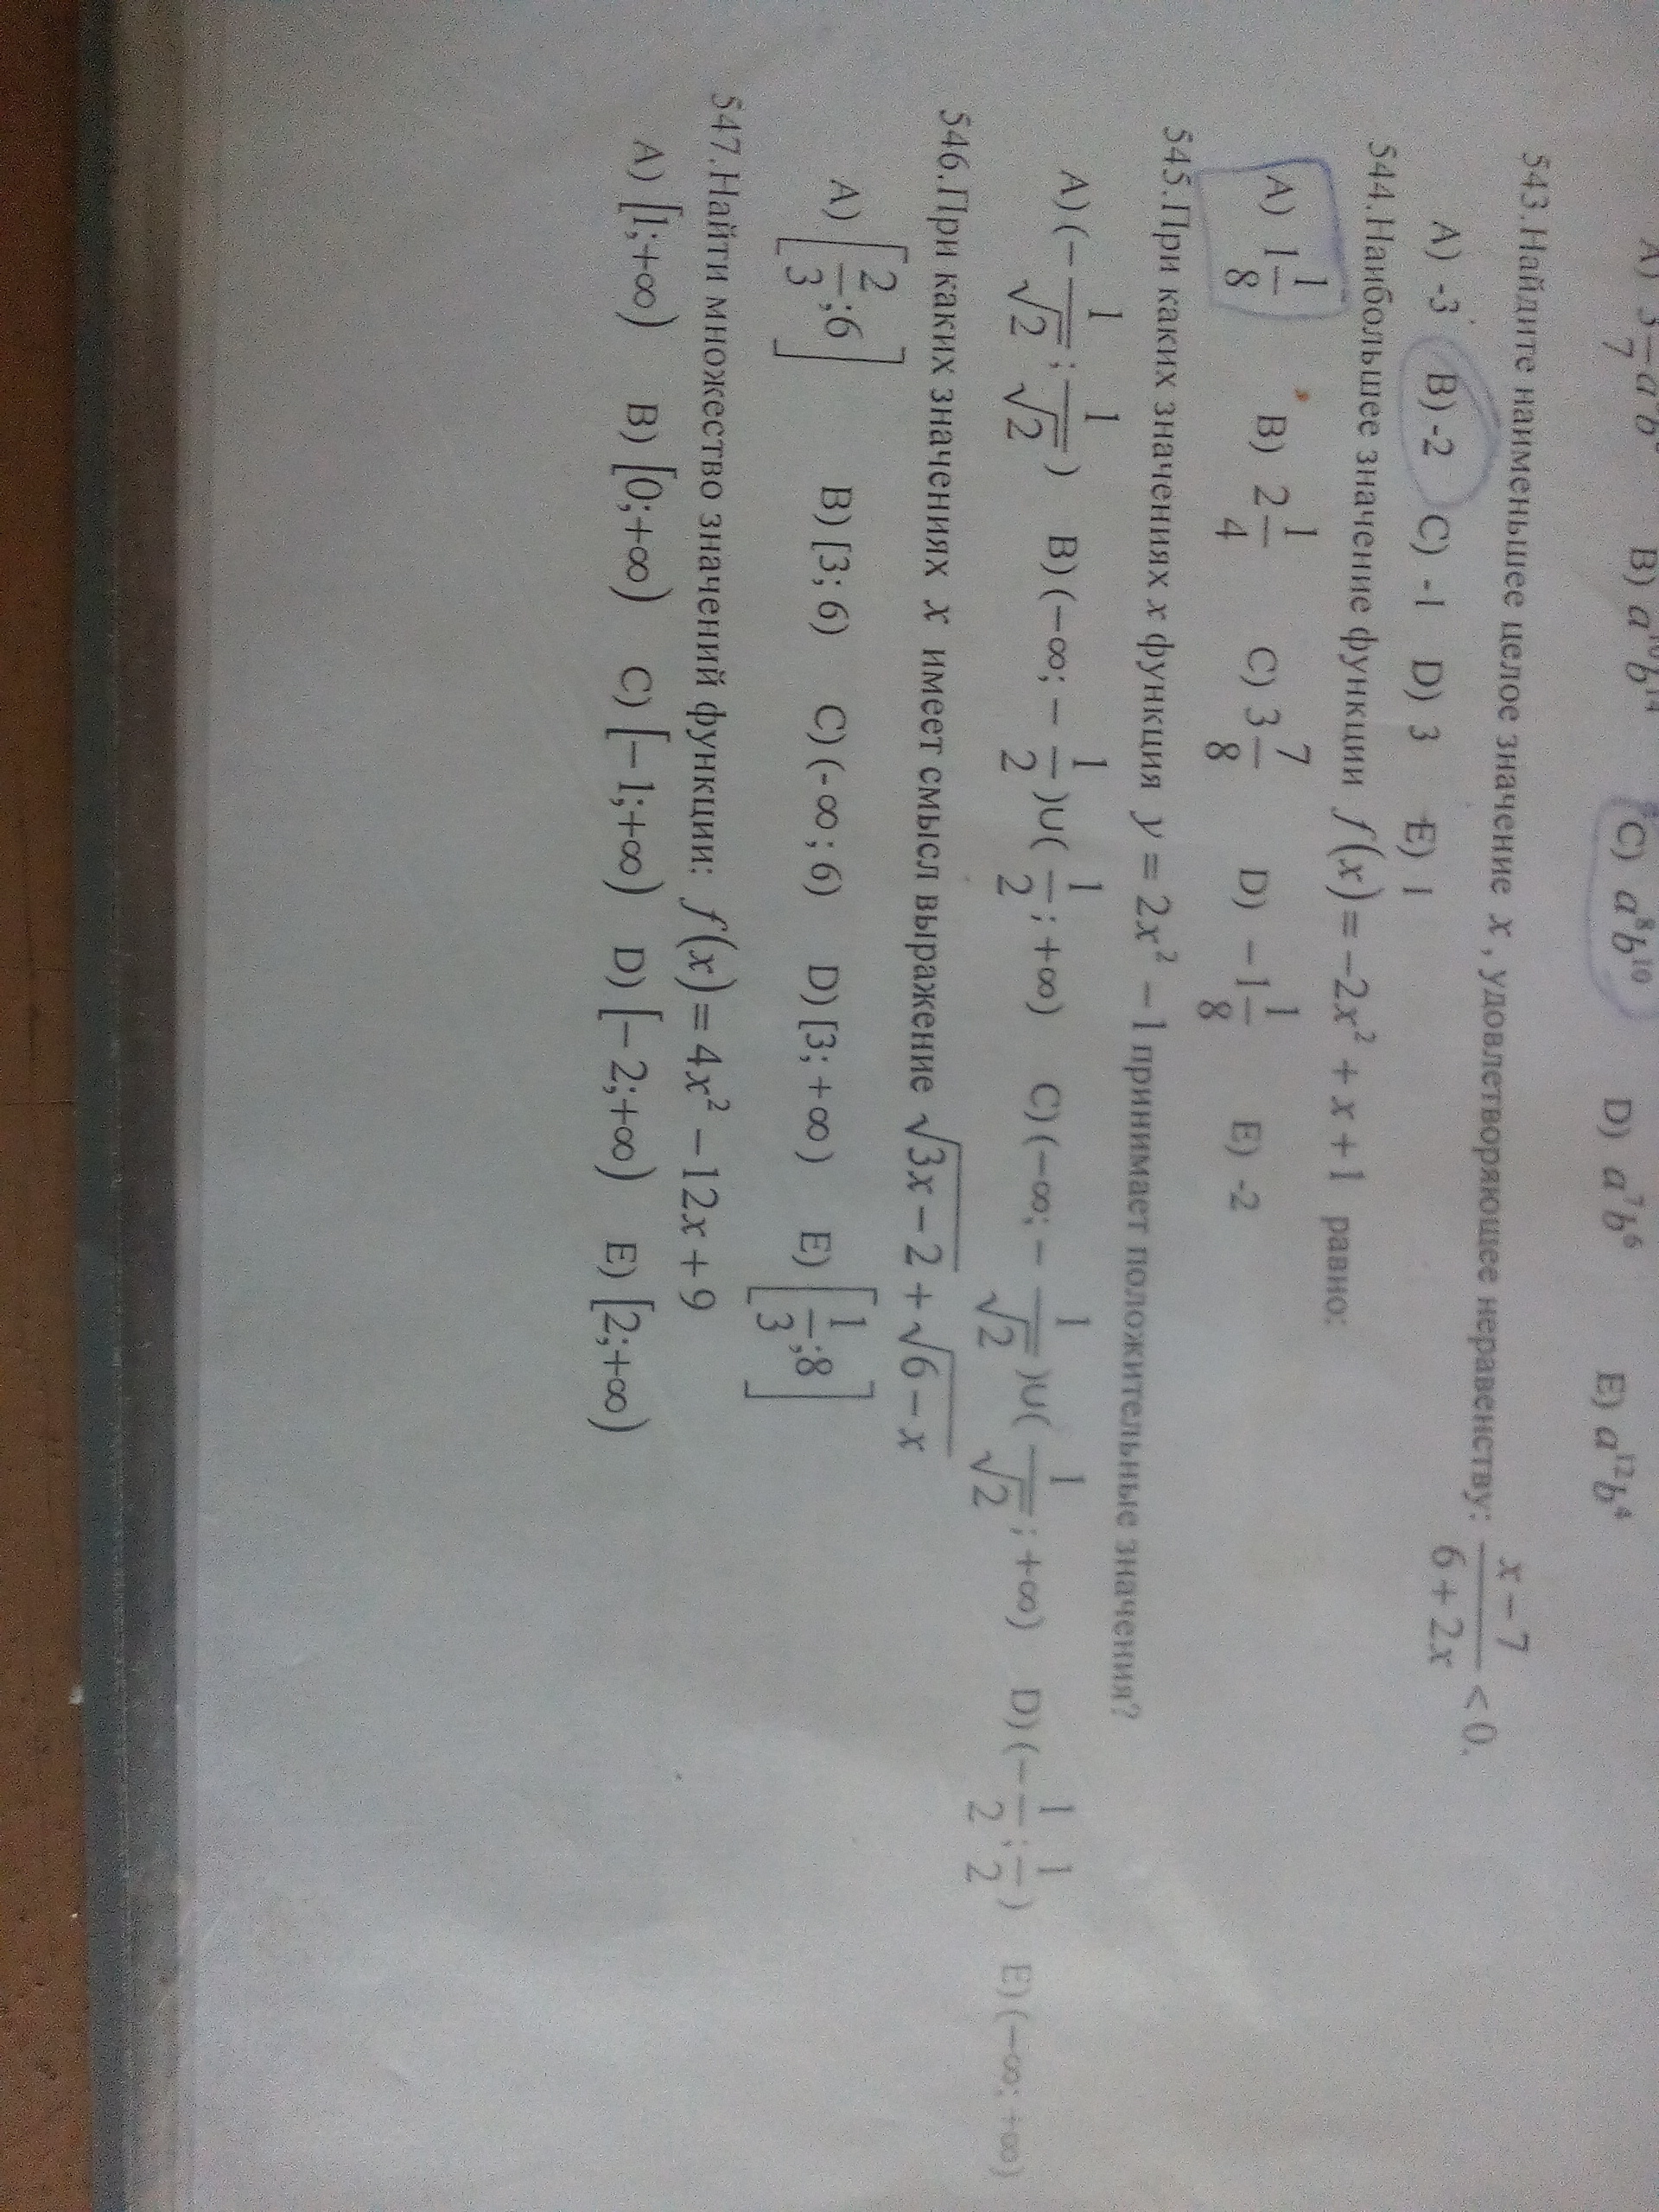 B) a¹⁰b¹⁴ C) a⁸b¹⁰ D) a⁷b⁶ E) a¹²b⁴
543.Найдите наименьшее целое значение x, удовлетворяющее неравенству: (x−7)/(6+2x) < 0.
A) -3 B) -2 C) -1 D) 3 E) 1
544.Наибольшее значение функции f(x)=−2x²+x+1 равно:
A) 1 1/8 B) 2 1/4 C) 3 7/8 D) −1 1/8 E) -2
545.При каких значениях x функция y=2x²−1 принимает положительные значения?
A) (−1/√2; 1/√2) B) (−∞; −1/2)∪(1/2; +∞) C) (−∞; −1/√2)∪(1/√2; +∞) D) (−1/2; 1/2) E) (−∞; +∞)
546.При каких значениях x имеет смысл выражение √(3x−2)+√(6−x)
A) [2/3;6] B) [3; 6) C) (-∞; 6) D) [3; +∞) E) [1/3;8]
547.Найти множество значений функции: f(x)=4x²−12x+9
A) [1;+∞) B) [0;+∞) C) [−1;+∞) D) [−2;+∞) E) [2;+∞)